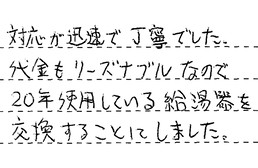 対応が迅速で丁寧でした。
代金もリーズナブルなので
20年使用している給湯器を
交換することにしました。